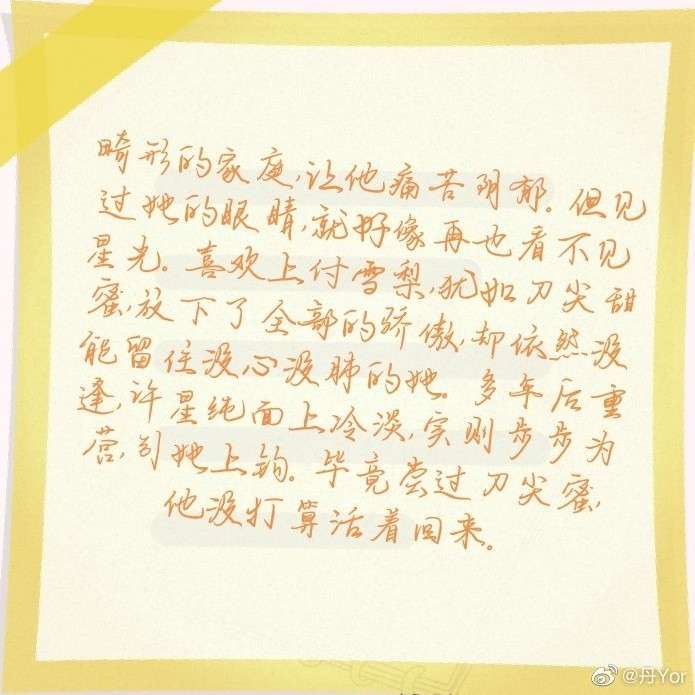 畸形的家庭,让他痛苦阴郁。但见
过她的眼睛,就好像再也看不见
星光。喜欢上付雪梨,犹如刀尖甜
蜜,放下了全部的骄傲,却依然没
能留住没心没肺的她。多年后重
逢,许星纯面上冷淡,实则步步为
营,引她上钩。毕竟尝过刀尖蜜,
他没打算活着回来。
@丹Yor